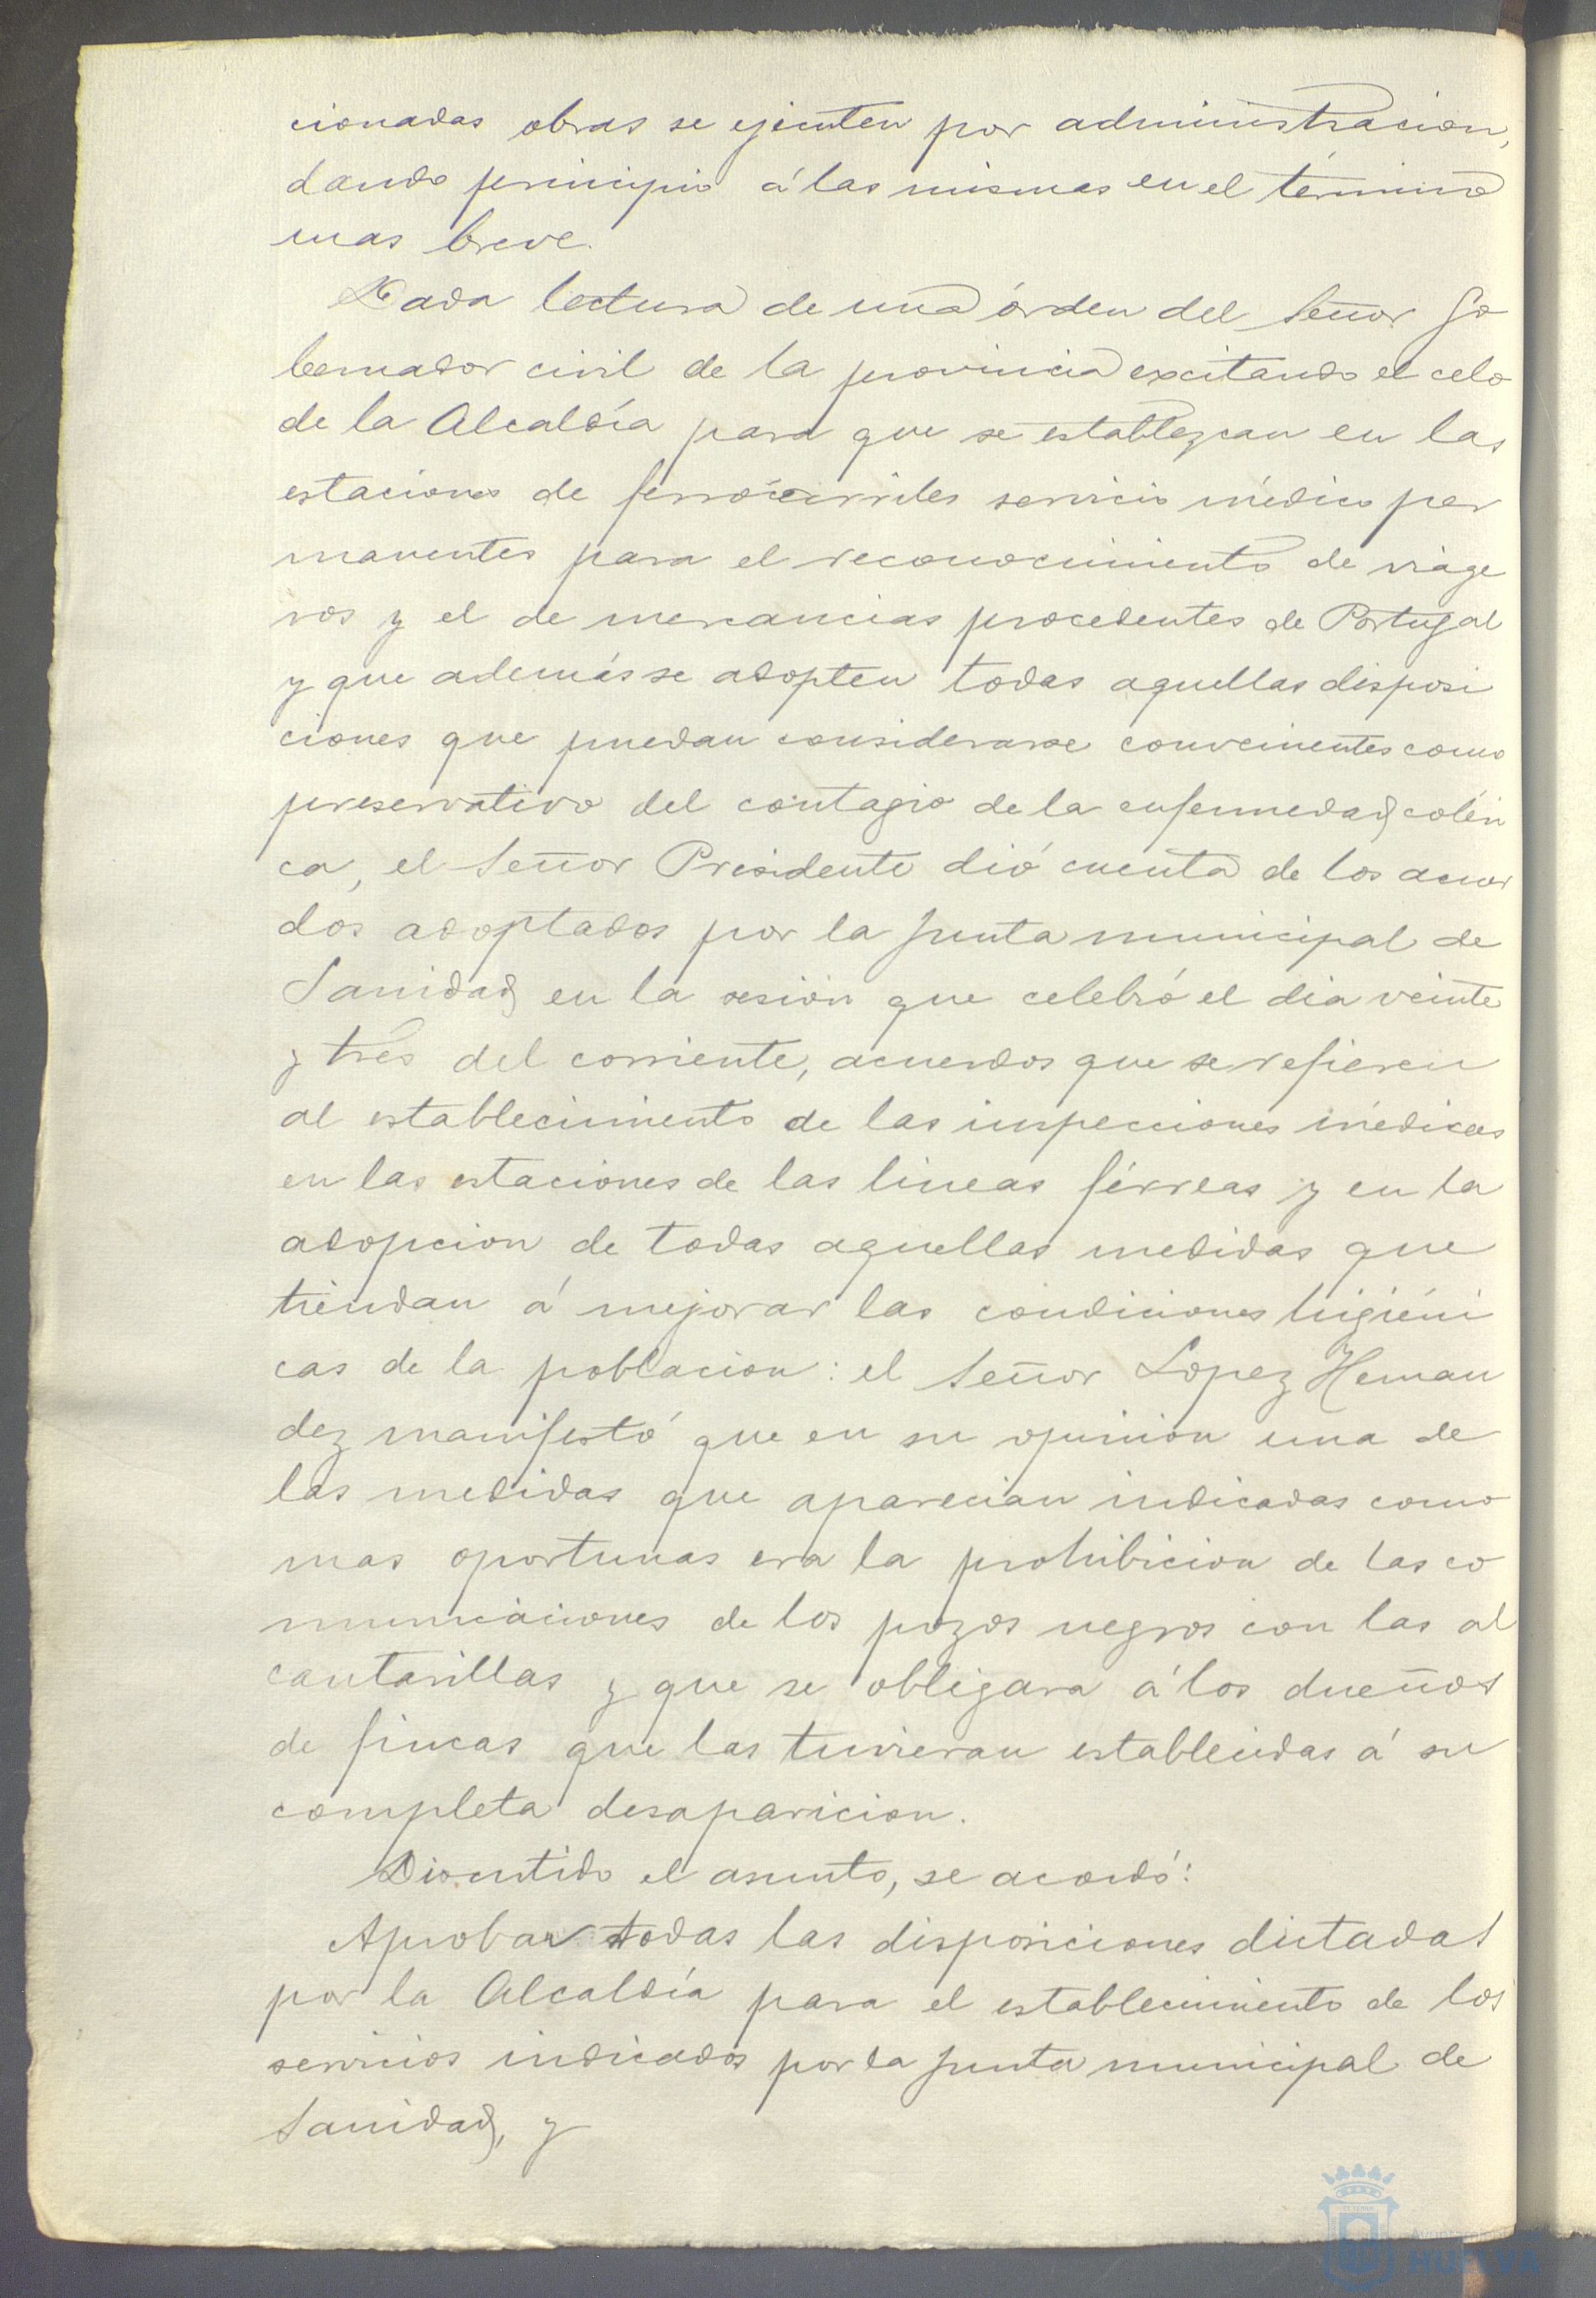 cionadas obras se ejecuten por administracion,
dando principio á las mismas en el término
mas breve.
Dada lectura de una órden del Señor Go
bernador civil de la provincia excitando el celo
de la Alcaldía para que se establezcan en las
estaciones de ferrocarriles servicio médico per
manentes para el reconocimiento de viage
ros y el de mercancias procedentes de Portugal
y que además se adopten todas aquellas disposi
ciones que puedan considerarse convenientes como
preservativo del contagio de la enfermedad coléri
ca, el Señor Presidente dió cuenta de los acuer
dos adoptados por la Junta municipal de
Sanidad en la sesión que celebró el dia veinte
y tres del corriente, acuerdos que se refieren
al establecimiento de las inspecciones médicas
en las estaciones de las lineas férreas y en la
adopcion de todas aquellas medidas que
tiendan á mejorar las condiciones higiéni
cas de la poblacion: el Señor Lopez Hernan
dez manifestó que en su opinion una de
las medidas que aparecian indicadas como
mas oportunas era la prohibicion de las co
municaciones de los pozos negros con las al
cantarillas y que se obligara á los dueños
de fincas que las tuvieran establecidas á su
completa desaparicion.
Discutido el asunto, se acordó:
Aprobar todas las disposiciones dictadas
por la Alcaldía para el establecimiento de los
servicios indicados por la Junta municipal de
Sanidad, y
HUELVA